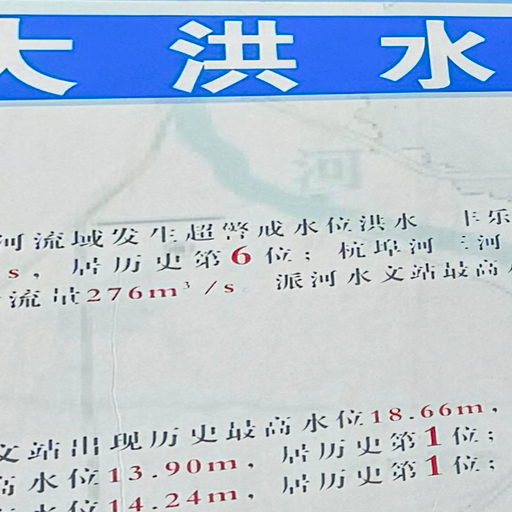 大洪水
河流域发生超警戒水位洪水 丰乐
s, 居历史第6位；杭埠河三河
流量276m³/s 派河水文站最高
文站出现历史最高水位18.66m,
高水位13.90m, 居历史第1位；
水位14.24m, 居历史第1位；